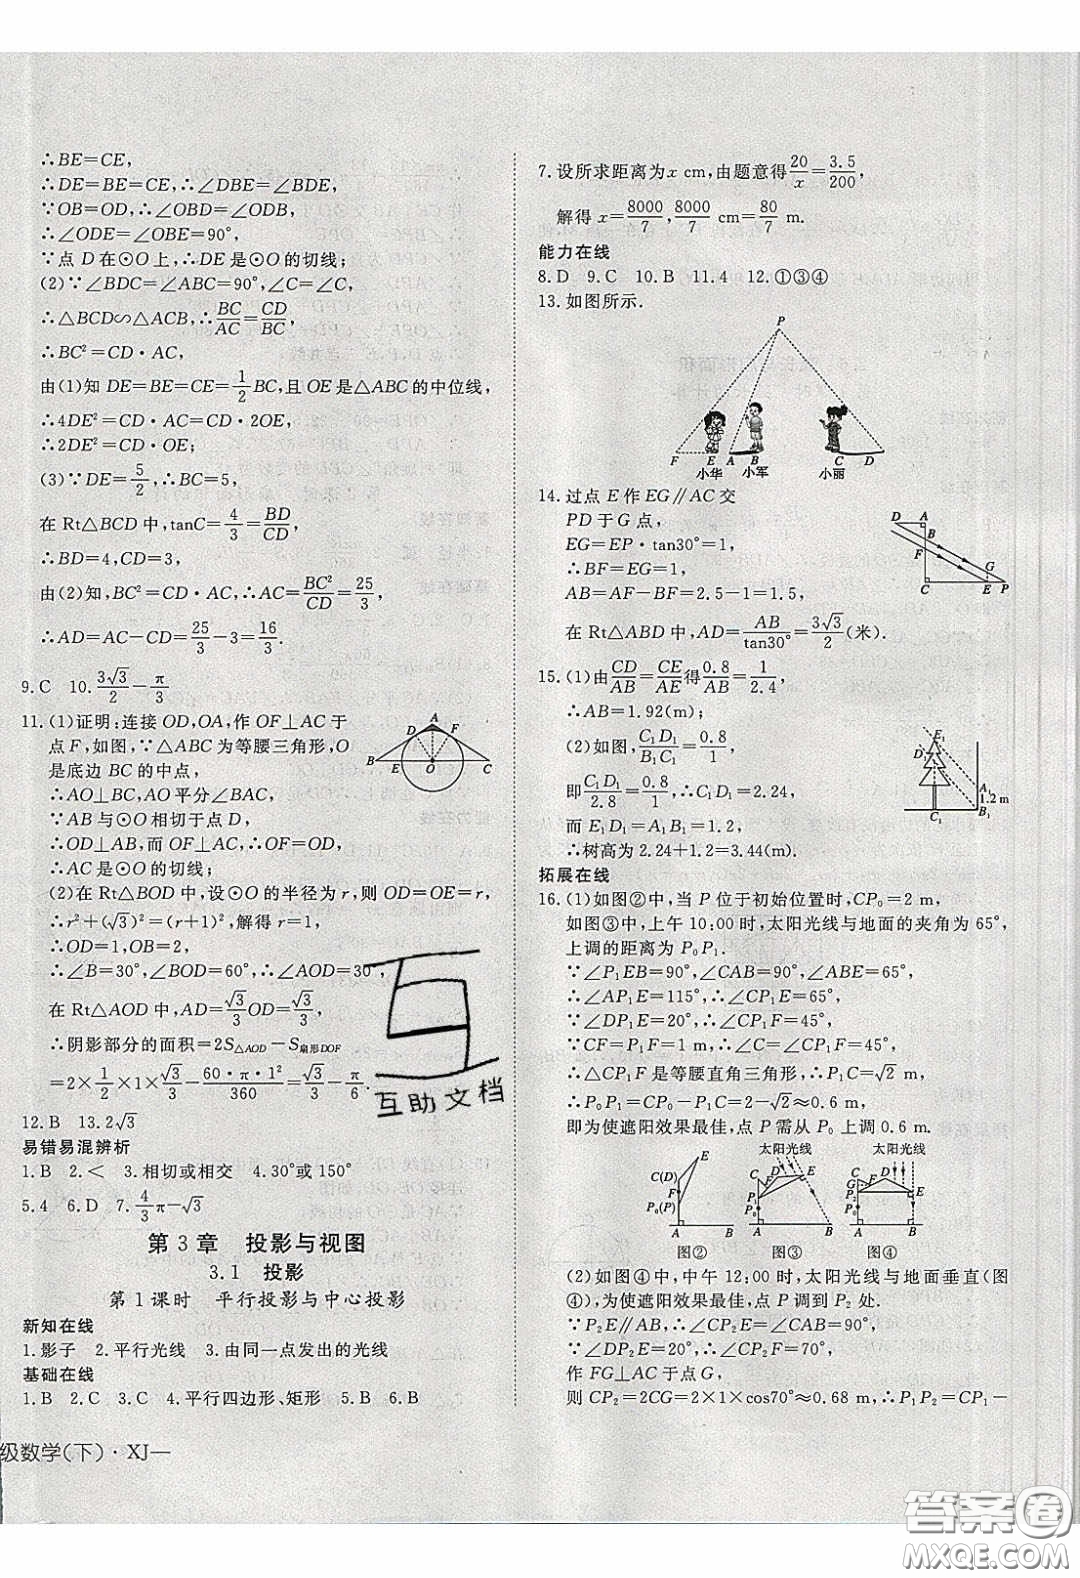 ∴BE=CE,
∴DE=BE=CE,∴∠DBE=∠BDE,
∵OB=OD,∴∠OBD=∠ODB,
∴∠ODE=∠OBE=90°,
∵点D在⊙O上,∴DE是⊙O的切线;
(2)∵∠BDC=∠ABC=90°,∠C=∠C,
∴△BCD∽△ACB,∴BC/AC=CD/BC,
∴BC²=CD·AC,
由(1)知DE=BE=CE=1/2BC,且OE是△ABC的中位线,
∴4DE²=CD·AC=CD·2OE,
∴2DE²=CD·OE;
(3)∵DE=5/2,∴BC=5,
在Rt△BCD中,tanC=4/3=BD/CD,
∴BD=4,CD=3,
由(2)知,BC²=CD·AC,∴AC=BC²/CD=25/3,
∴AD=AC−CD=25/3−3=16/3.
9.C 10.3√3/2−π/3
11.(1)证明:连接OD,OA,作OF⊥AC于
点F,如图,∵△ABC为等腰三角形,O
是底边BC的中点,
∴AO⊥BC,AO平分∠BAC,
∵AB与⊙O相切于点D,
∴OD⊥AB,而OF⊥AC,∴OF=OD,
∴AC是⊙O的切线;
(2)在Rt△BOD中,设⊙O的半径为r,则OD=OE=r,
∴r²+(√3)²=(r+1)²,解得r=1,
∴OD=1,OB=2,
∴∠B=30°,∠BOD=60°,∴∠AOD=30°,
在Rt△AOD中,AD=√3/3OD=√3/3,
∴阴影部分的面积=2S△AOD−S扇形DOF
=2×1/2×1×√3/3−60·π·1²/360=√3/3−π/6.
12.B 13.2√3
易错易混辨析
1.B 2.< 3.相切或相交 4.30°或150°
5.4 6.D 7.4/3π−√3
第3章 投影与视图
3.1 投影
第1课时 平行投影与中心投影
新知在线
1.影子 2.平行光线 3.由同一点发出的光线
基础在线
1.B 2.C 3.C 4.平行四边形、矩形 5.B 6.B
级数学(下)·XJ—
A
D
F
B
E
O
C
互助文档
7.设所求距离为x cm,由题意得20/x=3.5/200,
解得x=8000/7,8000/7 cm=80/7 m.
能力在线
8.D 9.C 10.B 11.4 12.①③④
13.如图所示.
P
F
E
A
B
C
D
小华
小军
小丽
14.过点E作EG∥AC交
PD于G点,
EG=EP·tan30°=1,
∴BF=EG=1,
AB=AF−BF=2.5−1=1.5,
在Rt△ABD中,AD=AB/tan30°=3√3/2(米).
D A
B
F
G
C E P
15.(1)由CD/AB=CE/AE得0.8/AB=1/2.4,
∴AB=1.92(m);
(2)如图,C₁D₁/B₁C₁=0.8/1,
即C₁D₁/2.8=0.8/1,∴C₁D₁=2.24,
而E₁D₁=A₁B₁=1.2,
∴树高为2.24+1.2=3.44(m).
E₁
D₁
A₁
1.2 m
C₁
B₁
拓展在线
16.(1)如图②中,当P位于初始位置时,CP₀=2 m,
如图③中,上午10:00时,太阳光线与地面的夹角为65°,
上调的距离为P₀P₁.
∵∠P₁EB=90°,∠CAB=90°,∠ABE=65°,
∴∠AP₁E=115°,∴∠CP₁E=65°,
∵∠DP₁E=20°,∴∠CP₁F=45°,
∵CF=P₁F=1 m,∴∠C=∠CP₁F=45°,
∴△CP₁F是等腰直角三角形,∴P₁C=√2 m,
∴P₀P₁=CP₀−P₁C=2−√2≈0.6 m,
即为使遮阳效果最佳,点P需从P₀上调0.6 m.
太阳光线
太阳光线
E
C(D)
F
P₀(P)
A B
C F D E
P₁
P₀
A B
C F D
P₂ E
P₁
P₀
A B
图②
图③
图④
(2)如图④中,中午12:00时,太阳光线与地面垂直(图
④),为使遮阳效果最佳,点P调到P₂处.
∵P₂E∥AB,∴∠CP₂E=∠CAB=90°,
∵∠DP₂E=20°,∴∠CP₂F=70°,
作FG⊥AC于点G,
则CP₂=2CG=2×1×cos70°≈0.68 m,∴P₁P₂=CP₁−
答案卷
MXQE.COM